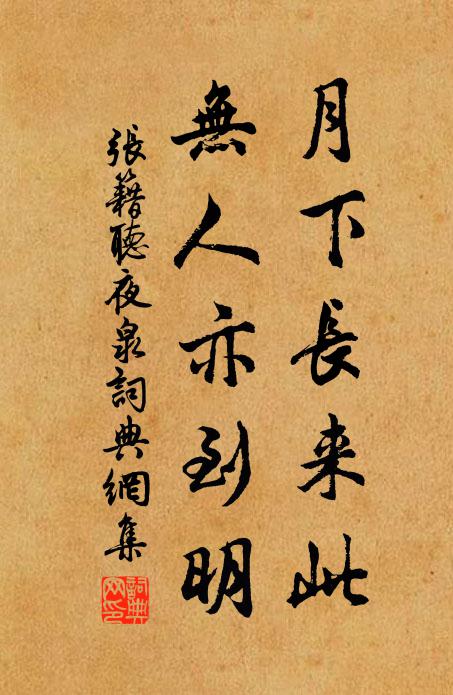 月下長来此
無人亦到明
張籍聽夜泉詞典網集
詞典網印